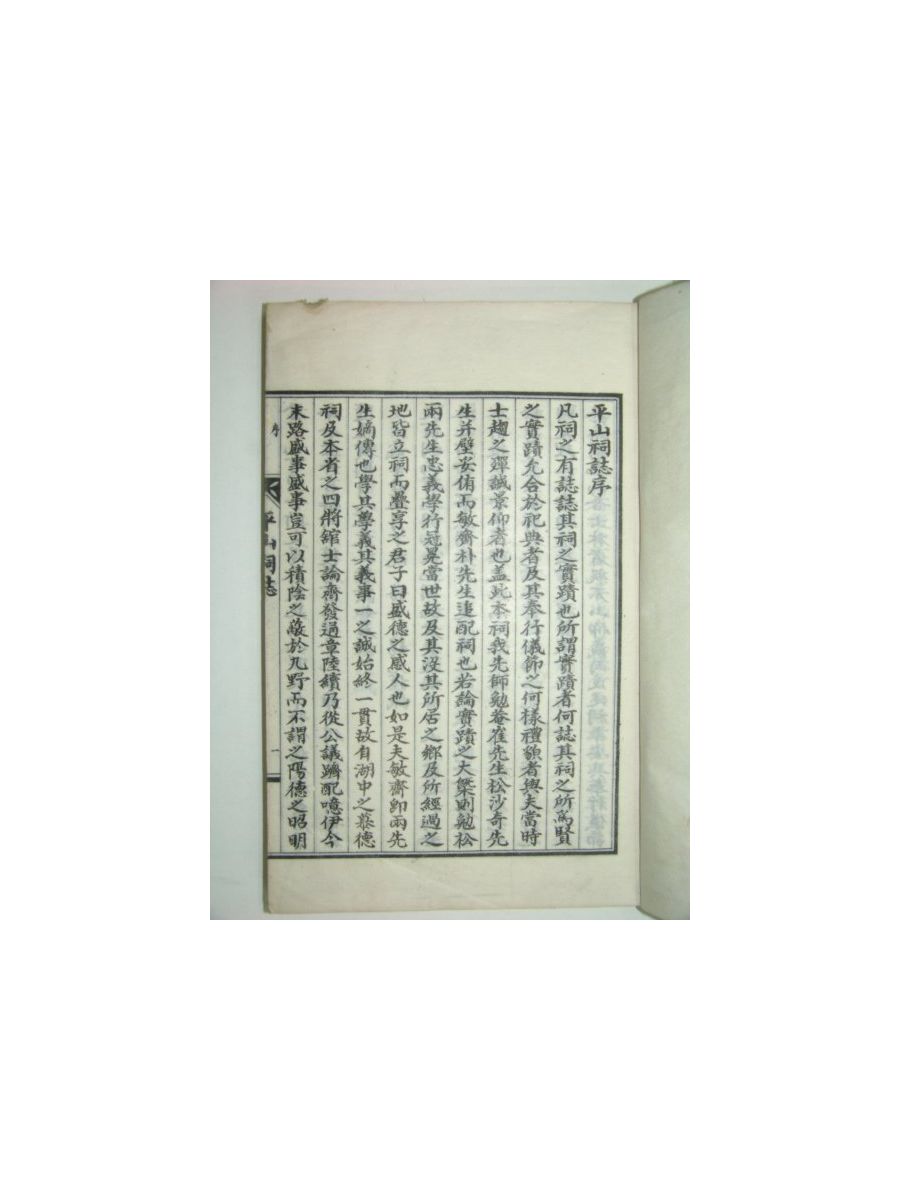 平山祠誌序
凡祠之有誌誌其祠之實蹟也所謂實蹟者何誌其祠之所爲賢
之實蹟允合於祀典者及其奉行儀節之何樣禮貌者與夫當時
士趨之殫誠景仰者也盖此本祠我先師勉菴崔先生松沙奇先
生并壁安侑而敏齋朴先生追配祠也若論實蹟之大槩則勉松
兩先生忠義學行冠冕當世故及其沒其所居之鄉及所經過之
地皆立祠而疊享之君子曰盛德之感人也如是夫敏齋卽兩先
生嫡傳也學其學義其義事一之誠始終一貫故自湖中之慕德
祠及本省之四將舘士論齊發過章陸續乃從公議躋配噫伊今
末路盛事盛事豈可以積陰之蔽於九野而不謂之陽德之昭明
序
平山祠誌
一